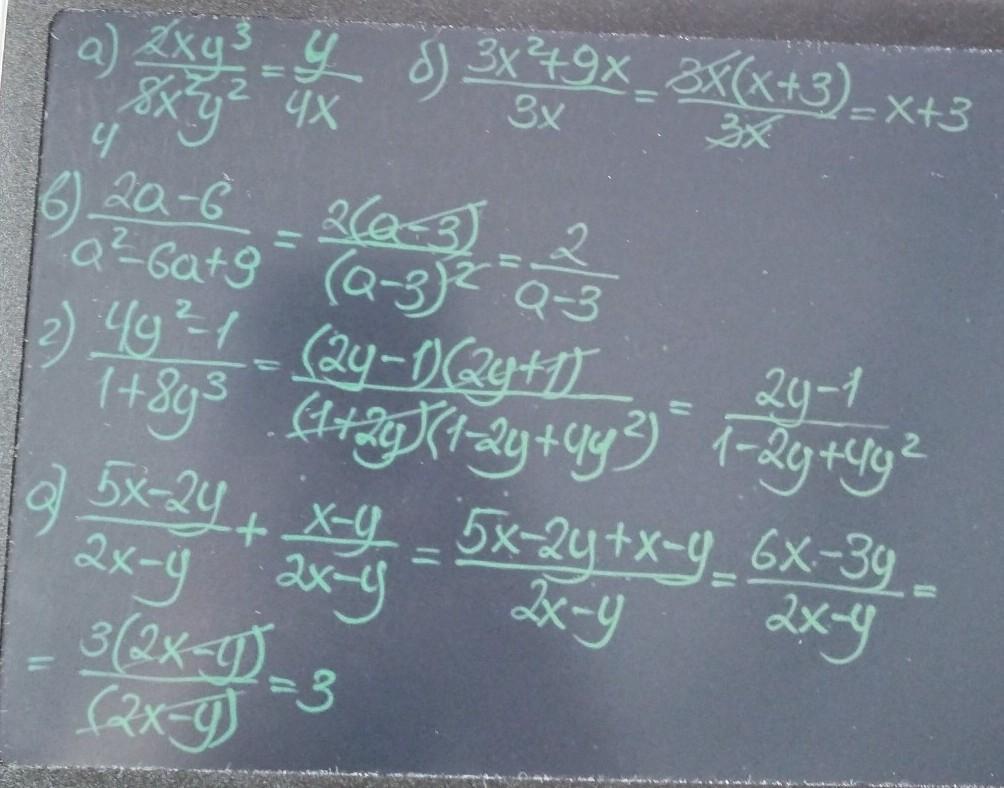 а) 2xy³/8x²y² = y/4x б) 3x²+9x/3x = 3x(x+3)/3x = x+3
4
в) 2a-6/a²-6a+9 = 2(a-3)/(a-3)² = 2/a-3
г) 4y²-1/1+8y³ = (2y-1)(2y+1)/(1+2y)(1-2y+4y²) = 2y-1/1-2y+4y²
а) 5x-2y/2x-y + x-y/2x-y = 5x-2y+x-y/2x-y = 6x-3y/2x-y =
= 3(2x-y)/(2x-y) = 3